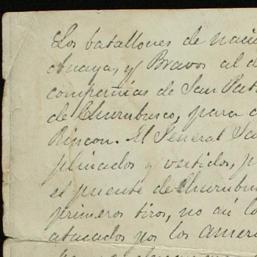 Los batallones de naci
y Bravos al d
compañias de San Pat
de Churubusco, para
Rincon. El General Sa
y vestidos, p
el puente de Churubu
primeros tiros, no asi lo
atacados por los Ameri